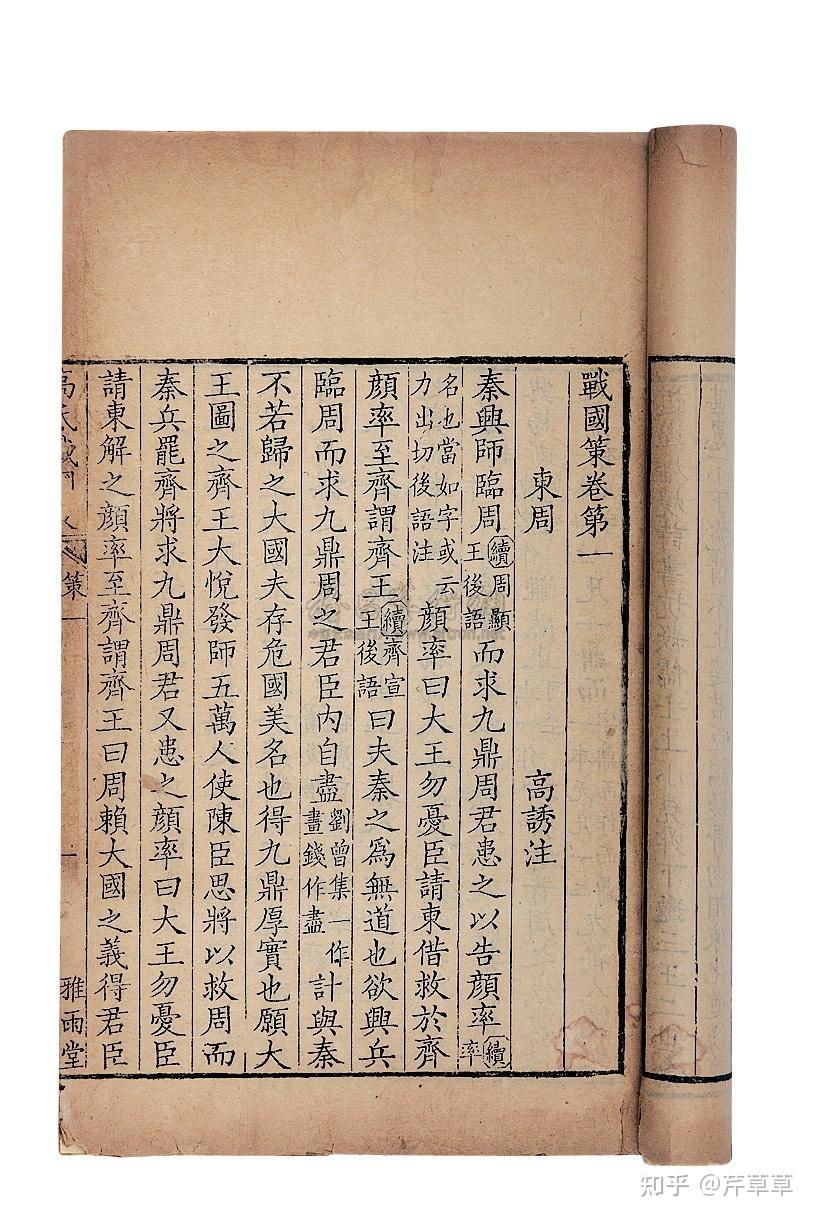 戰國策卷第一
東周 高誘注
秦興師臨周續周顯王後語而求九鼎周君患之以告顏率續率
名也當如字或云力出切後語注顏率曰大王勿憂臣請東借救於齊
顏率至齊謂齊王續齊宣王後語曰夫秦之爲無道也欲興兵
臨周而求九鼎周之君臣内自盡劉曾集一作畫錢作盡計與秦
不若歸之大國夫存危國美名也得九鼎厚實也願大
王圖之齊王大悅發師五萬人使陳臣思將以救周而
秦兵罷齊將求九鼎周君又患之顏率曰大王勿憂臣
請東解之顏率至齊謂齊王曰周賴大國之義得君臣
策一
一
雅雨堂
知乎 @芹草草